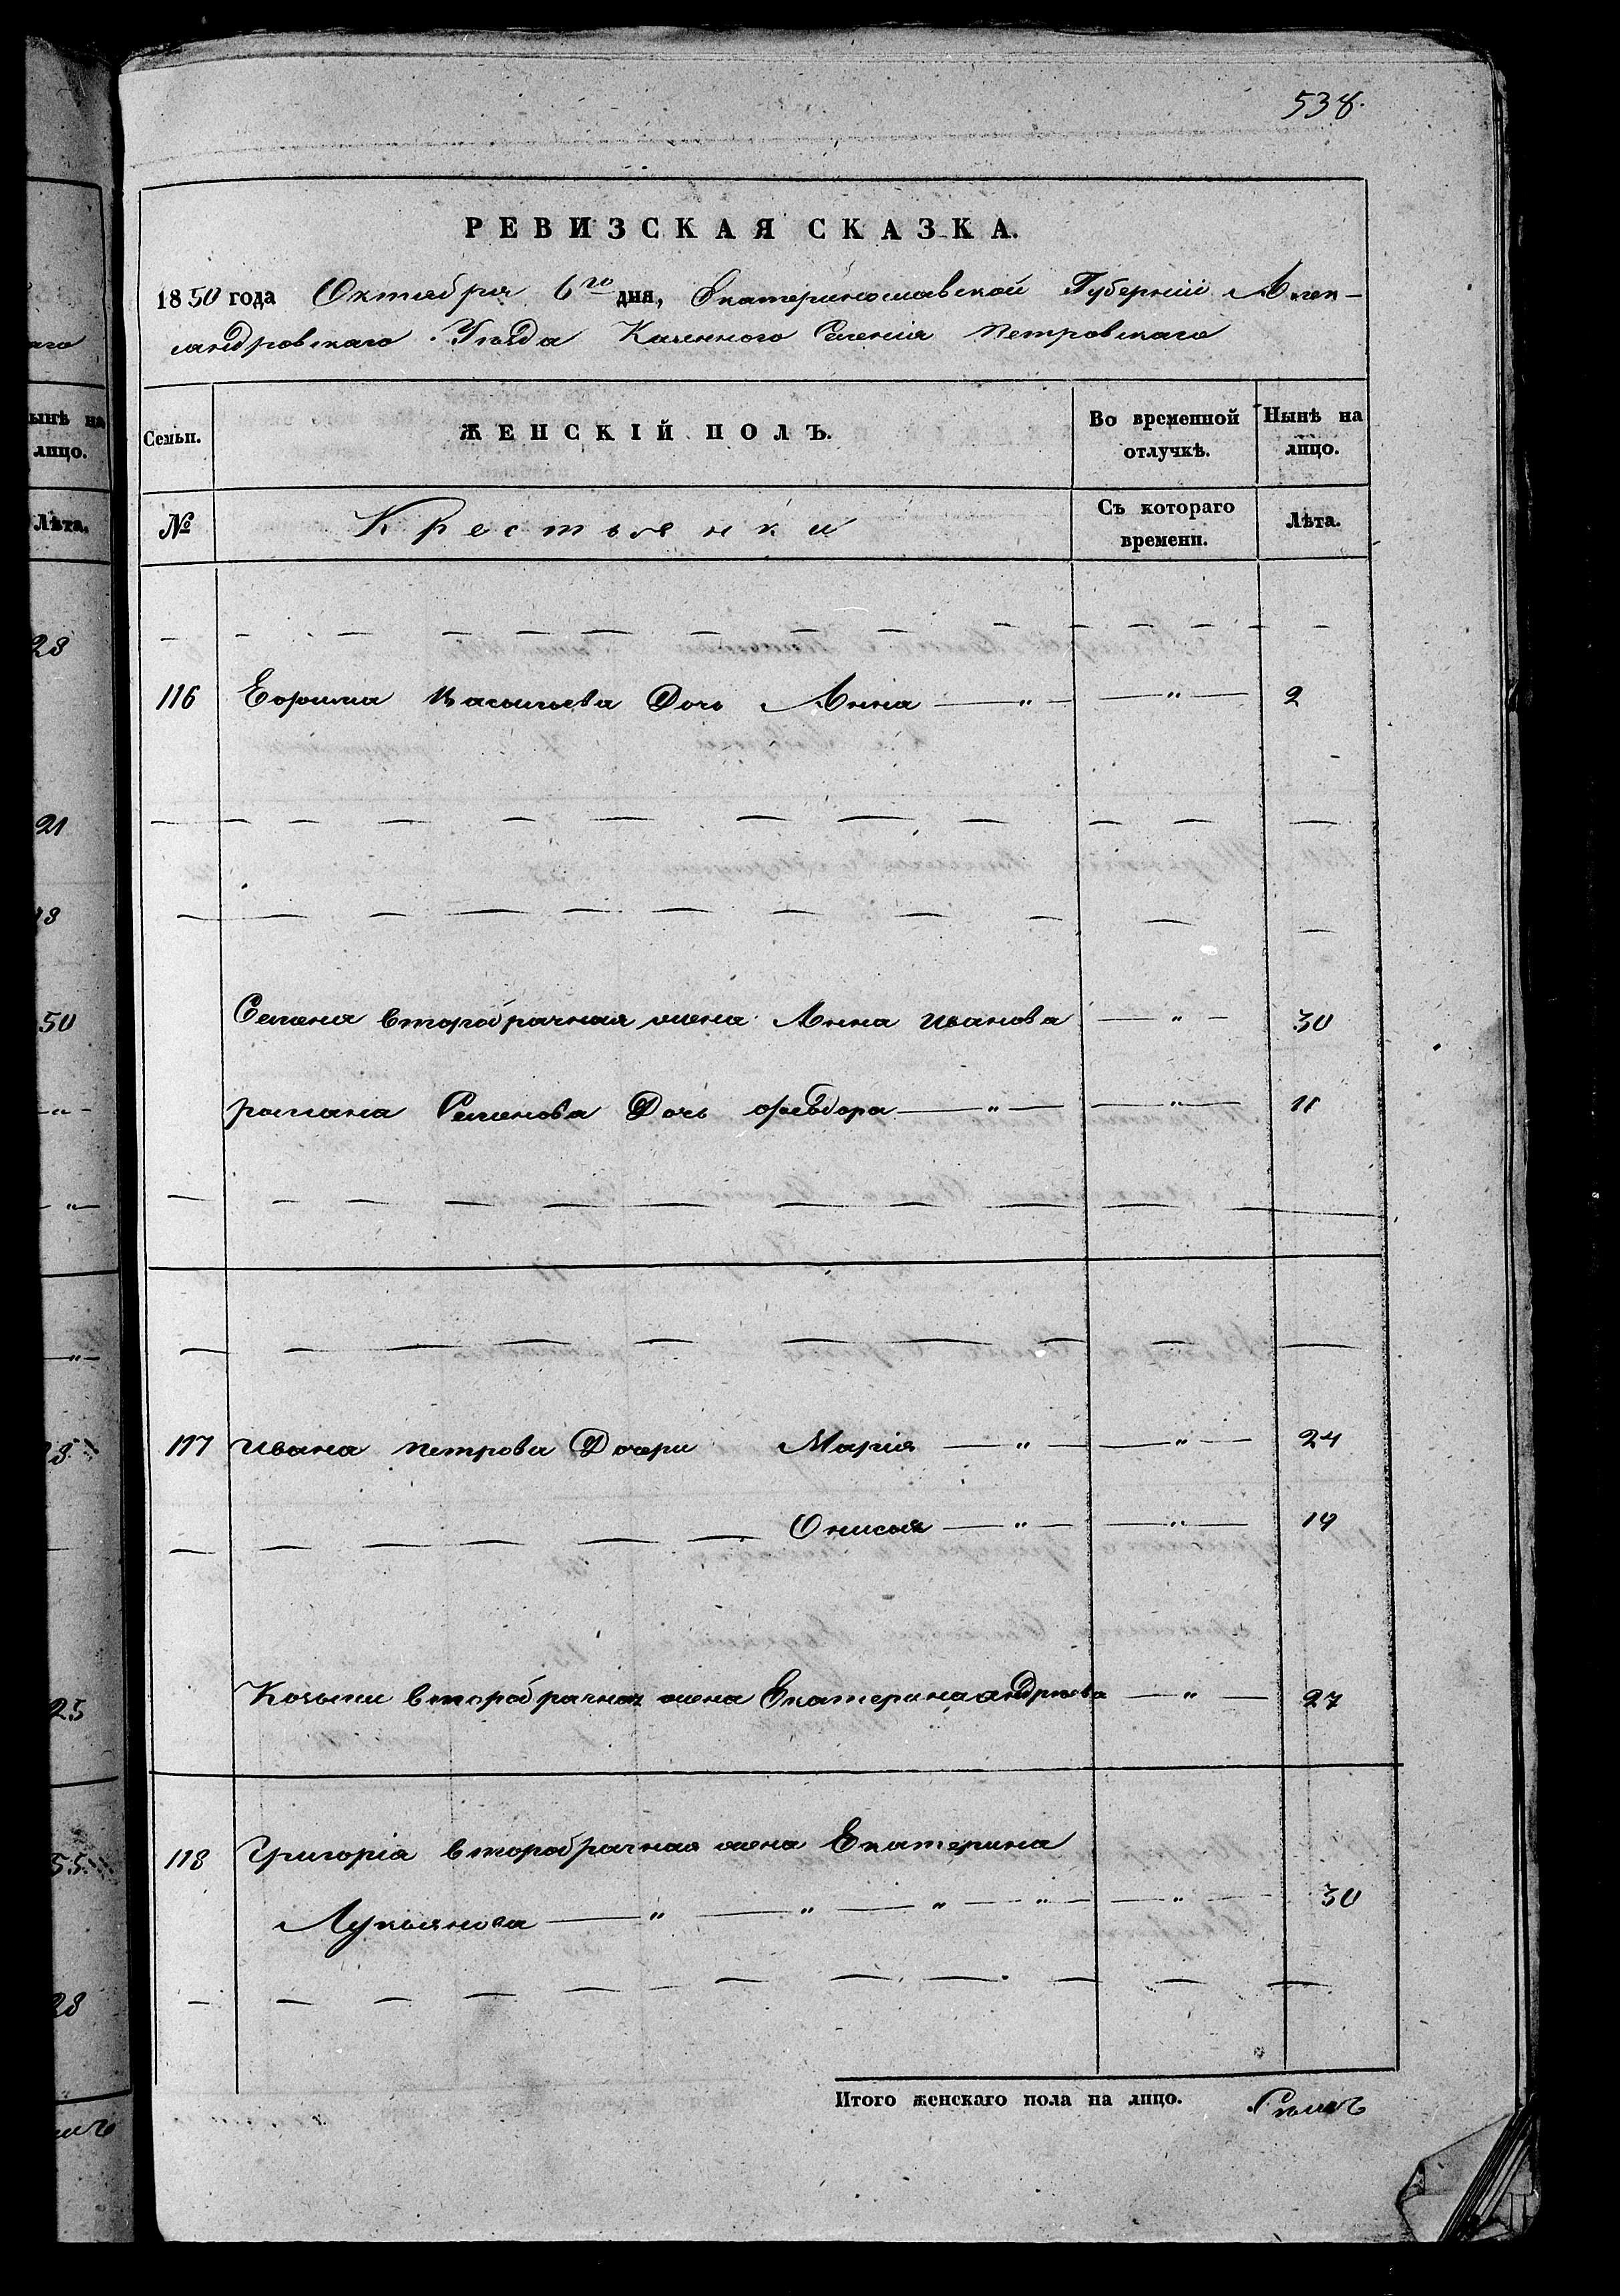 538.
РЕВИЗСКАЯ СКАЗКА.
1850 года Октября 6го дня, Екатеринославской Губерніи Алек-
сандровскаго Уезда Казенного Селенія Петровскаго
Семьи. ЖЕНСКІЙ ПОЛЪ. Во временной отлучкѣ. Нынѣ на лицо.
№ Крестьянки Съ котораго времени. Лѣта.
116 Ефима Васильева Дочь Анна — " — — " — 2
Семена второбрачная жена Анна иванова — " — 30
романа Семенова Дочь феѣдора — " — — " — 11
117 ивана петрова Дочери Марія — " — — " — 24
Онисья — " — — " — 19
Козьмы второбрачная жена Екатерина андреева — " — 27
118 Григорія второбрачная жена Екатерина
Лукьянова — " — " — " — " — — " — 30
Итого женскаго пола на лицо. Семь
аго
ынѣ на
лицо.
Лѣта.
28
21
50
— " —
— " —
— " —
25
55
28